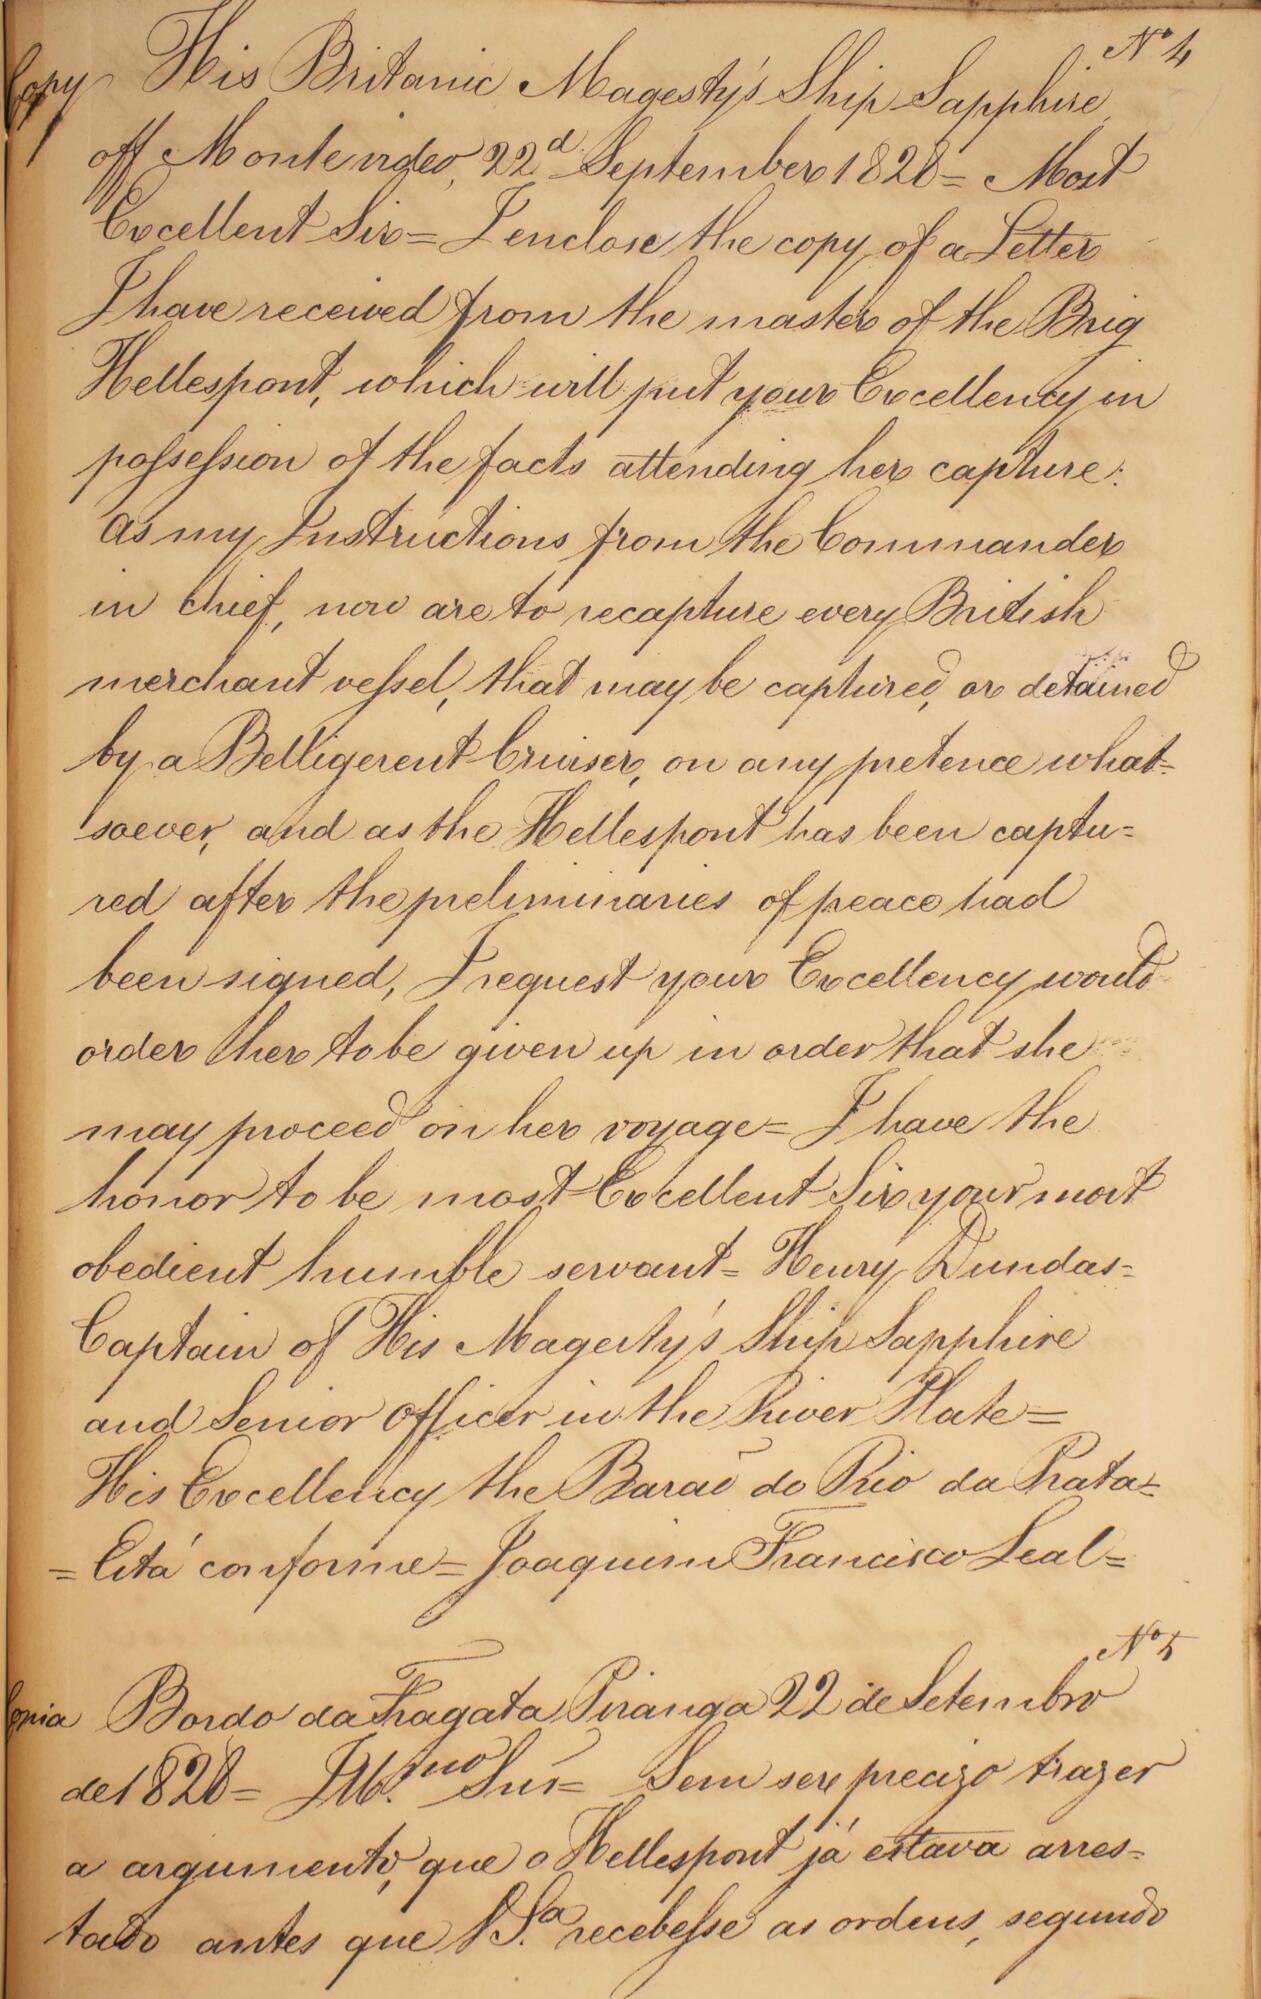 Nº 4
Copy His Britanic Magesty's Ship Sapphire
off Montevideo, 22d September 1828 = Most
Excellent Sir = I enclose the copy of a Letter
I have received from the master of the Brig
Hellespont, which will put your Excellency in
possession of the facts attending her capture:
as my Instructions from the Commander
in chief, now are to recapture every British
merchant vessel, that may be captured, or detained
by a Belligerent Cruiser, on any pretence what=
soever, and as the Hellespont has been captu=
red after the preliminaries of peace had
been signed, I request your Excellency would
order her to be given up in order that she
may proceed on her voyage = I have the
honor to be most Excellent Sir your most
obedient humble servant = Henry Dundas =
Captain of His Magesty's Ship Sapphire
and Senior Officer in the River Plate =
His Excellency the Baraõ do Rio da Prata =
= Está conforme = Joaquim Francisco Leal =
Nº 5
Copia Bordo da Fragata Piranga 22 de Setembro
de 1828 = Ill.mo Snr = Sem ser precizo trazer
a argumento, que o Hellespont já estava arres=
tado antes que V. S.a recebesse as ordens, segundo